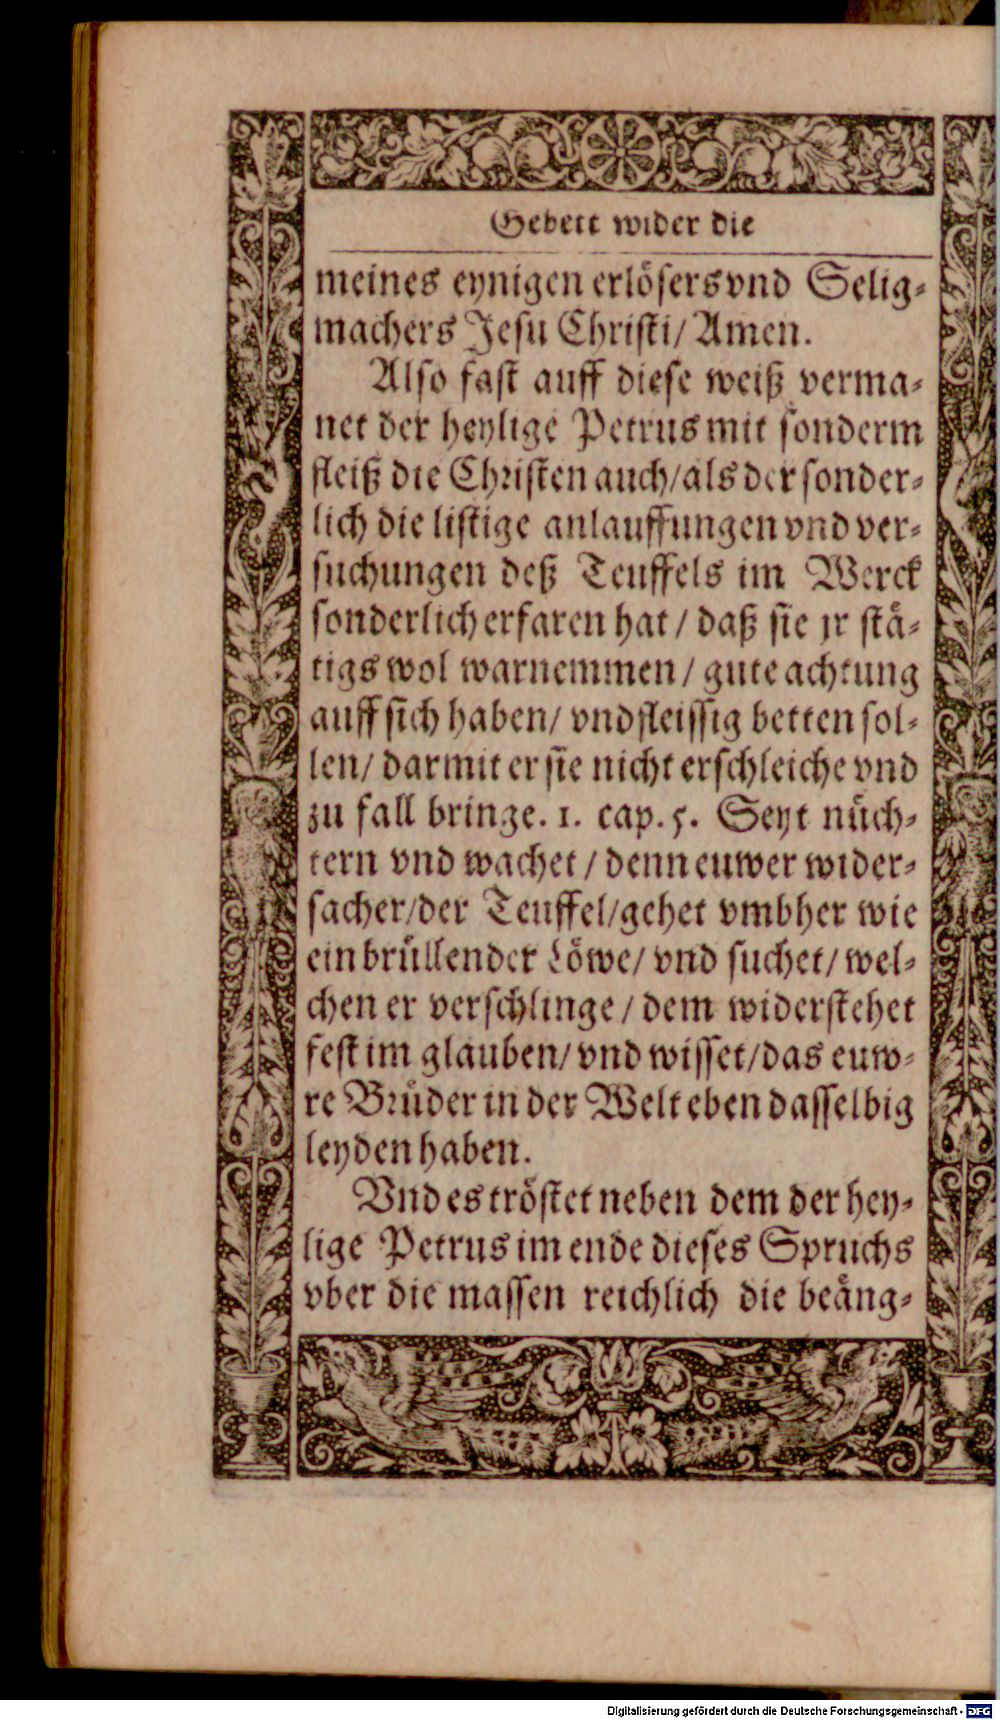 Gebett wider die
meines eynigen erlösers vnd Selig⸗
machers Jesu Christi/ Amen.
Also fast auff diese weiß verma⸗
net der heylige Petrus mit sonderm
fleiß die Christen auch/ als der sonder⸗
lich die listige anlauffungen vnd ver⸗
suchungen deß Teuffels im Werck
sonderlich erfaren hat / daß sie jr stä⸗
tigs wol warnemmen / gute achtung
auff sich haben/ vnd fleissig betten sol⸗
len/ darmit er sie nicht erschleiche vnd
zu fall bringe. 1. cap. 5. Seyt nüch⸗
tern vnd wachet / denn euwer wider⸗
sacher/der Teuffel/gehet vmbher wie
ein brüllender Löwe/ vnd suchet/ wel⸗
chen er verschlinge / dem widerstehet
fest im glauben/ vnd wisset/das euw⸗
re Brüder in der Welt eben dasselbig
leyden haben.
Vnd es tröstet neben dem der hey⸗
lige Petrus im ende dieses Spruchs
vber die massen reichlich die beäng⸗
Digitalisierung gefördert durch die Deutsche Forschungsgemeinschaft - DFG